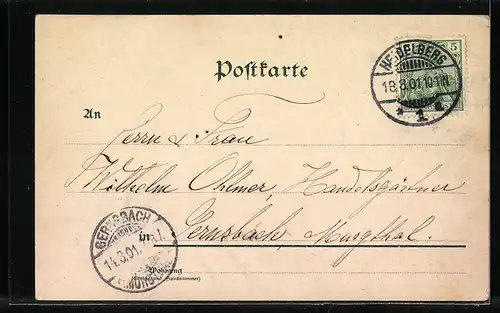 Postkarte
5
HEIDELBERG
13.3.01.10-11N.
* 1. a
An
Herrn & Frau
Wilhelm Ohlmer, Handelsgärtner
in Gernsbach, Murgthal.
GERNSBACH
14.3.01.
Wohnung
(Straße und Hausnummer)